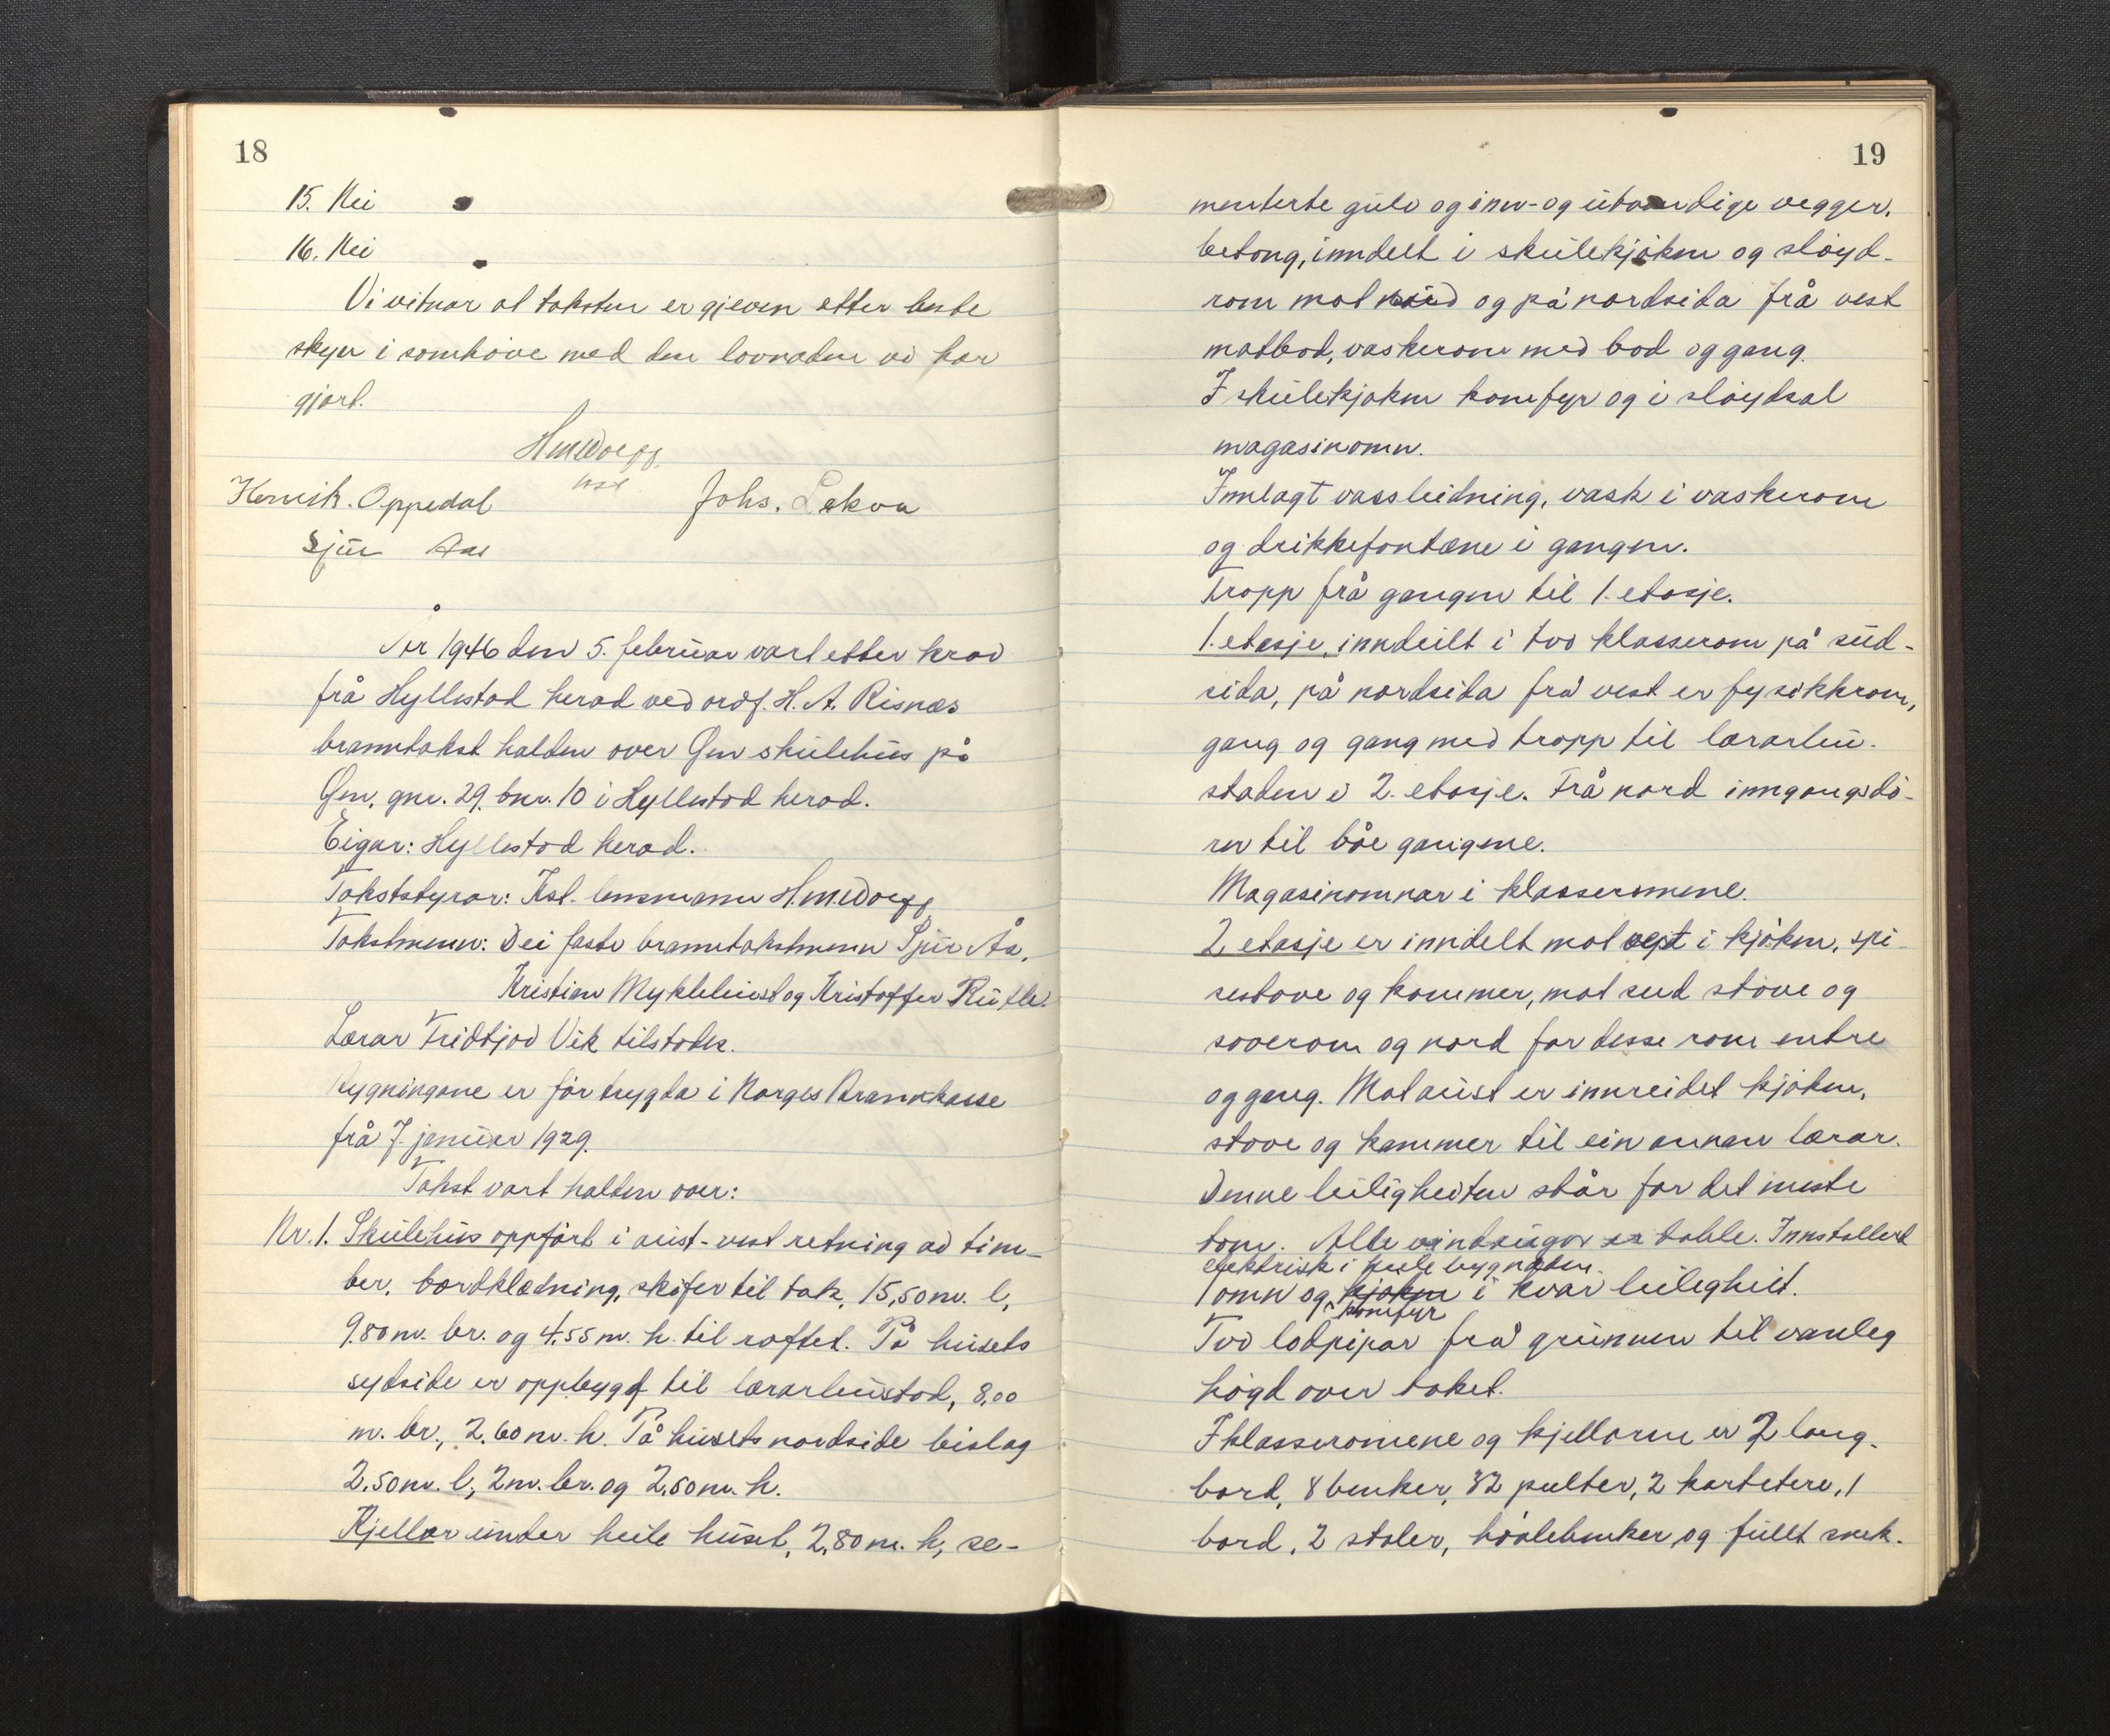 18
15. Nei
16. Nei
Vi vitnar at taksten er gjeven etter beste
skyn i samhøve med den lovnaden vi har
gjort.
Henrik. Oppedal
Johs. Lekva
Sjur Aas
År 1946 den 5. februar vart etter krav
frå Hyllestad herad ved ordf. H. A. Risnæs
branntakst halden over Øen skulehus på
Øen, gnr. 29, bnr. 10 i Hyllestad herad.
Eigar: Hyllestad herad.
Takststyrar: Kst. lensmann
Takstmenn: Dei faste branntakstmenn Sjur Ås,
Kristian Myklebust og Kristoffer Rutle.
Lærar Fridtjov Vik tilstodes.
Bygningane er før trygda i Norges Brannkasse
frå 7. januar 1929.
Takst vart halden over:
Nr. 1. Skulehus oppført i aust-vest retning av tim-
ber, bordklædning, skifer til tak, 15,50 m. l,
9.80 m. br. og 4.55 m. h. til raftet. På husets
sydside er oppbygd til lærarbustad, 8,00
m. br., 2,60 m. h. På husets nordside bislag
2.50 m. l, 2 m. br. og 2,50 m. h.
Kjellar under heile huset, 2,80 m. h, se-
19
menterte gulv og inn- og utvendige vegger,
betong, inndelt i skulekjøken og sløyd-
rom mot sud og på nordsida frå vest
matbod, vaskerom med bod og gang.
I skulekjøken komfyr og i sløydsal
magasinomn.
Innlagt vassleidning, vask i vaskerom
og drikkefontæne i gangen.
Tropp frå gangen til 1. etasje.
1. etasje, inndeilt i tvo klasserom på sud-
sida, på nordsida frå vest er fysikkrom,
gang og gang med tropp til lærarbu-
staden i 2. etasje. Frå nord inngangsdø-
rer til båe gangene.
Magasinomnar i klasseromene.
2. etasje er inndelt mot vest i kjøken, spi-
sestove og kammer, mot sud stove og
soverom og nord for desse rom entre
og gang. Mot aust er innreidet kjøken,
stove og kammer til ein annan lærar.
Denne leiligheiten står for det meste
tom. Alle vindauger er doble. Innstallert
elektrisk i heile bygnaden.
1 omn og kjøken i kvar leilegheit.
komfyr
Tvo lodpipar frå grunnen til vanleg
høgd over taket.
I klasseromene og kjellaren er 2 lang-
bord, 8 benker, 32 pulter, 2 kartetere, 1
bord, 2 stoler, høvlebenker og fullt snek-